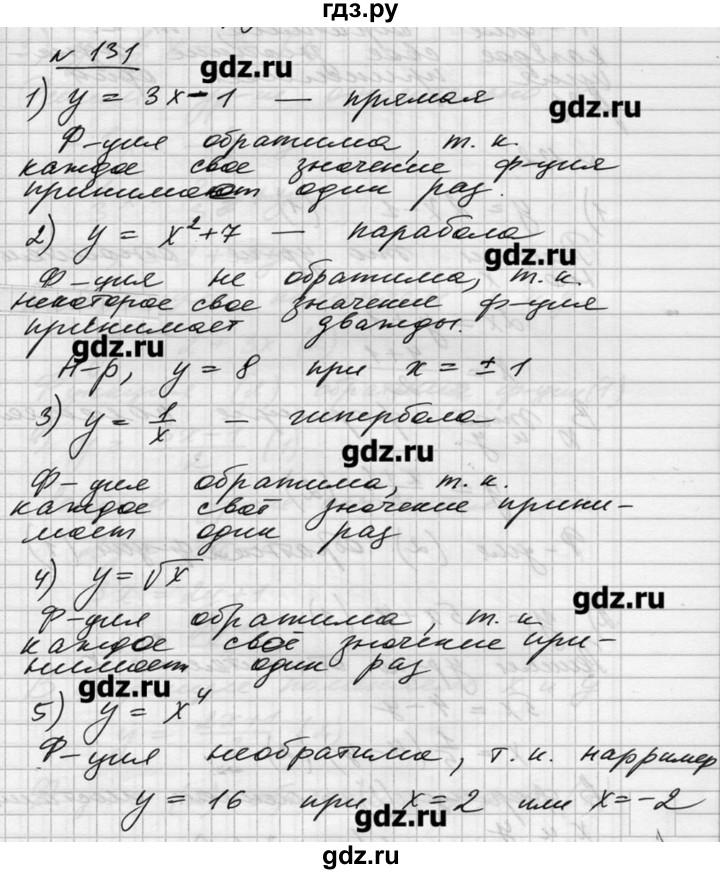 гдз.ру
№ 131
gdz.ru
1) y = 3x - 1 — прямая
gdz.ru
Ф-ция обратима, т. к.
каждое свое значение ф-ция
принимает один раз.
2) y = x² + 7 — парабола
gdz.ru
Ф-ция не обратима, т. к.
некоторое свое значение ф-ция
принимает дважды.
gdz.ru
Н-р, y = 8 при x = ± 1
3) y = 1/x — гипербола
gdz.ru
Ф-ция обратима, т. к.
каждое своё значение прини-
мает один раз
4) y = √x
gdz.ru
Ф-ция обратима, т. к.
каждое своё значение при-
нимает один раз
gdz.ru
5) y = x⁴
Ф-ция необратима, т. к. например
y = 16 при x = 2 или x = -2
gdz.ru
gdz.ru